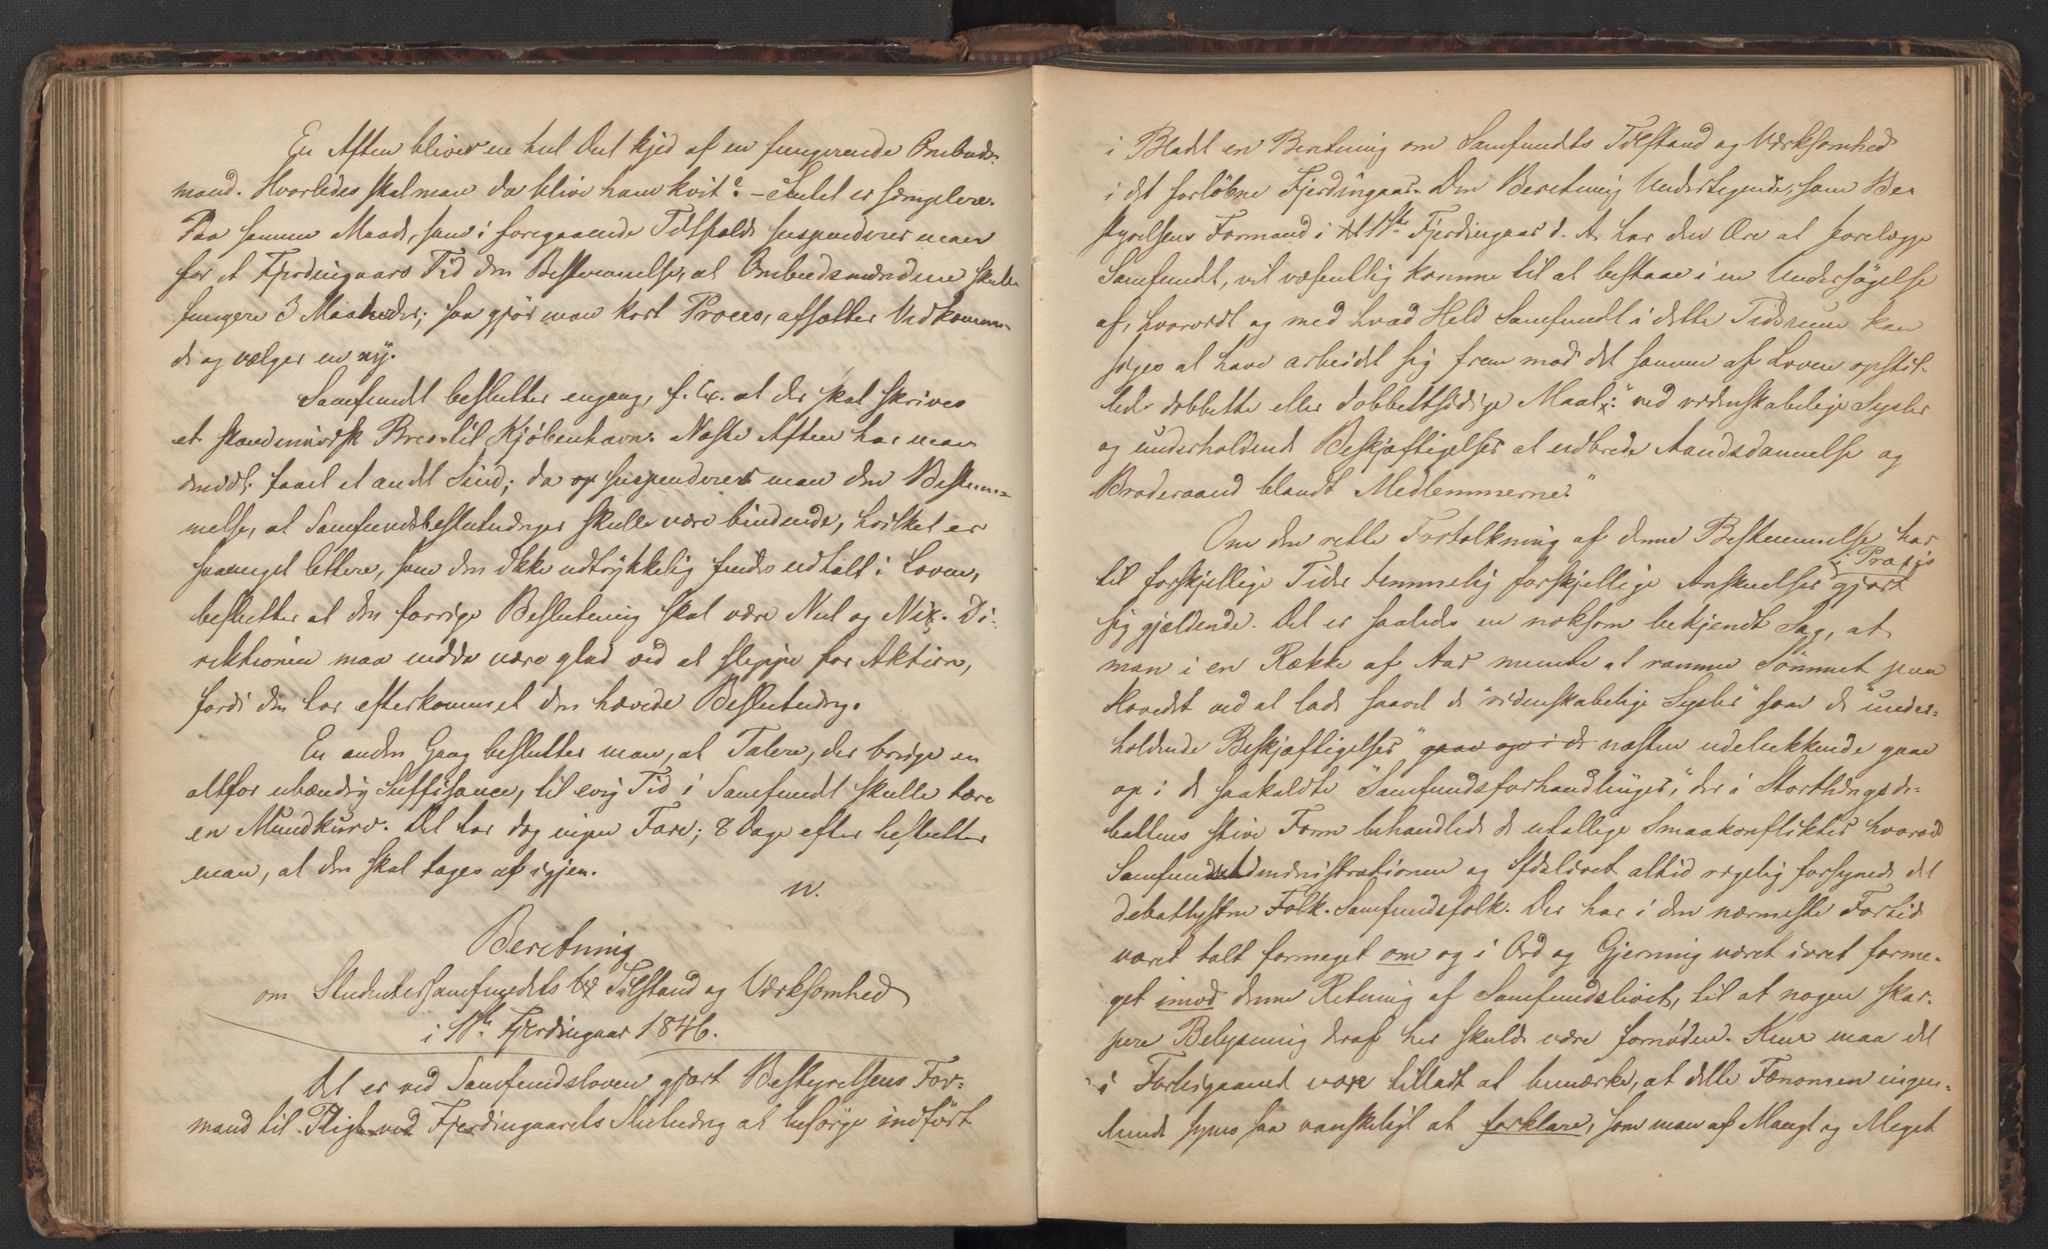 En Aften bliver en hel Del kjed af en fungerende Ombuds-
mand. Hvorledes skal man da blive ham kvit? – Intet er simplere.
Paa samme Maade, som i foregaaende Tilfælde suspenderer man
for et Fjerdingaars Tid den Bestemmelse, at Ombudsmændene skulle
fungere 3 Maaneder; saa gjør man kort Proces, afsætter Vedkommen-
de og vælger en ny.
Samfundet beslutter engang, f. Ex. at der skal skrives
et skandinavisk Brev til Kjøbenhavn. Næste Aften har man
faaet et andet Sind; da suspenderer man den Bestem-
melse, at Samfundsbeslutninger skulle være bindende, hvilket er
saameget lettere, som den ikke udtrykkelig findes udtalt i Loven,
beslutter at den forrige Beslutning skal være Nul og Nix. Di-
rektionen maa endda være glad ved at slippe for Aktion,
fordi den har efterkommet den hævede Beslutning.
En anden Gang beslutter man, at Talere, der bruge en
altfor ubændig Suffisance, til evig Tid i Samfundet skulle bære
en Mundkurv. Det har dog ingen Fare; 8 Dage efter beslutter
man, at den skal tages af igjen.
N.
Beretning
om Studentersamfundets Tilstand og Virksomhed
i 1ste Fjerdingaar 1846.
Det er ved Samfundsloven gjort Bestyrelsens For-
mand til Pligt ved Fjerdingaarets Slutning at besørge indført
i Bladet en Beretning om Samfundets Tilstand og Virksomhed
i det forløbne Fjerdingaar. Den Beretning Undertegnede, som Be-
styrelsens Formand i 1ste Fjerdingaar d. A. har den Ære at forelægge
Samfundet, vil væsentlig komme til at bestaae i en Undersøgelse
af, hvorvidt og med hvad Held Samfundet i dette Tidsrum kan
siges at have arbeidet sig frem mod det samme af Loven opstil-
lede dobbelte eller dobbeltsidige Maal: "ved videnskabelige Sysler
og underholdende Beskjæftigelser at udbrede Aandsdannelse og
Broderaand blandt Medlemmerne."
Om den rette Fortolkning af denne Bestemmelse har
i Praxis
til forskjellige Tider temmelig forskjellige Anskuelser gjort
sig gjældende. Det er saaledes en noksom bekjendt Sag, at
man i en Række af Aar meente at ramme Sømmet paa
Hovedet ved at lade saavel de "videnskabelige Sysler" som de "under-
holdende Beskjæftigelser" gaae op i de næsten udelukkende gaae
op i de saakaldte "Samfundsforhandlinger", der i Storthingsde-
battens stive Form behandlede de utallige Smaakonflikter hvorved
Samfundsadministrationen og Idelivet altid rigelig forsynede det
debatlystne Folk. Samfundsfolk. Der har i den nærmeste Fortid
været talt formeget om og i Ord og Gjerning været ivret forme-
get imod denne Retning af Samfundslivet, til at nogen skar-
pere Belysning deraf her skulde være fornøden. Kun maa det
i Forbigaaende være tilladt at bemærke, at dette Fænomen ingen-
lunde synes saa vanskeligt at forklare, som man af Mangt og Meget